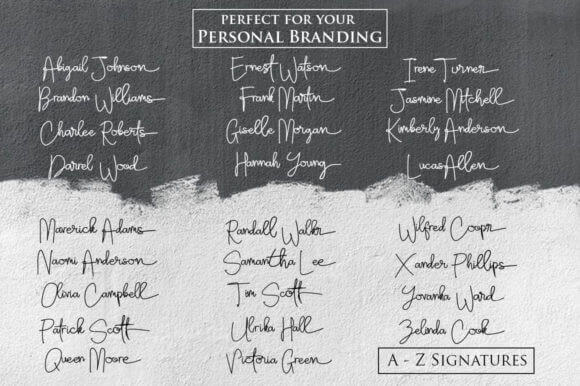 PERFECT FOR YOUR
PERSONAL BRANDING
Abigail Johnson
Brandon Williams
Charlee Roberts
Darrel Wood
Ernest Watson
Frank Martin
Giselle Morgan
Hannah Young
Irene Turner
Jasmine Mitchell
Kimberly Anderson
Lucas Allen
Maverick Adams
Naomi Anderson
Olivia Campbell
Patrick Scott
Queen Moore
Randall Walkr
Samantha Lee
Tim Scott
Ulrika Hall
Victoria Green
Wilfred Coopr
Xander Phillips
Yovanka Ward
Zelinda Cook
A - Z SIGNATURES